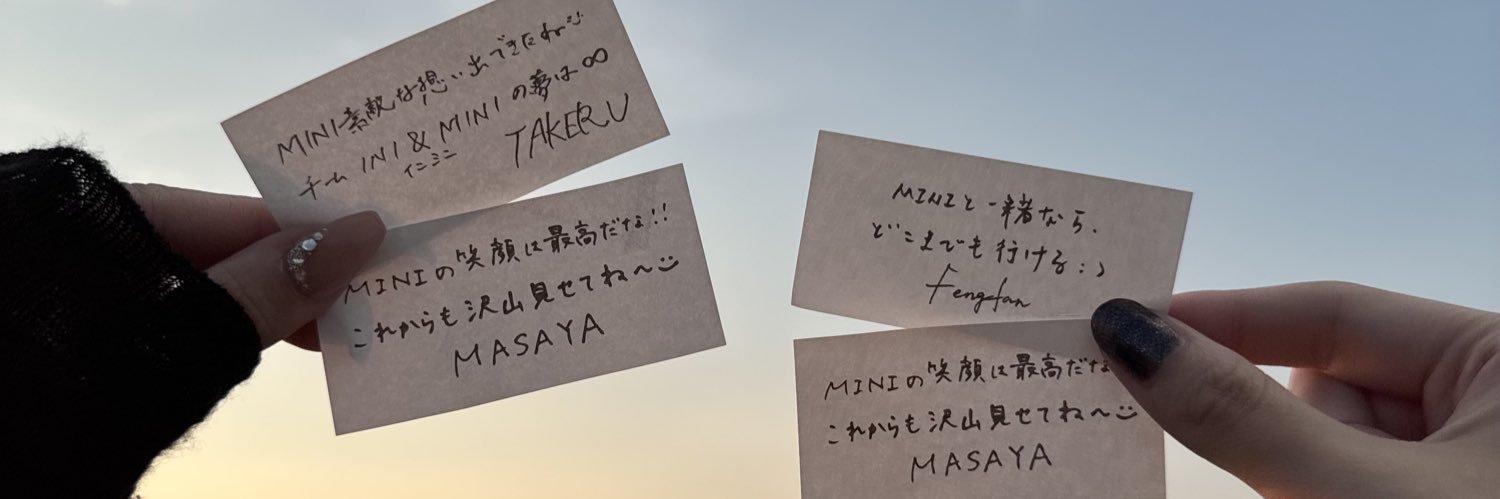 MINI素敵な想い出できたね:)
チーム INI & MINI の夢は∞
イニミニ
TAKERU
MINIの笑顔は最高だな!!
これからも沢山見せてね〜:)
MASAYA
MINIと一緒なら、
どこまでも行ける:)
Fengfan
MINIの笑顔は最高だな
これからも沢山見せてね〜:)
MASAYA